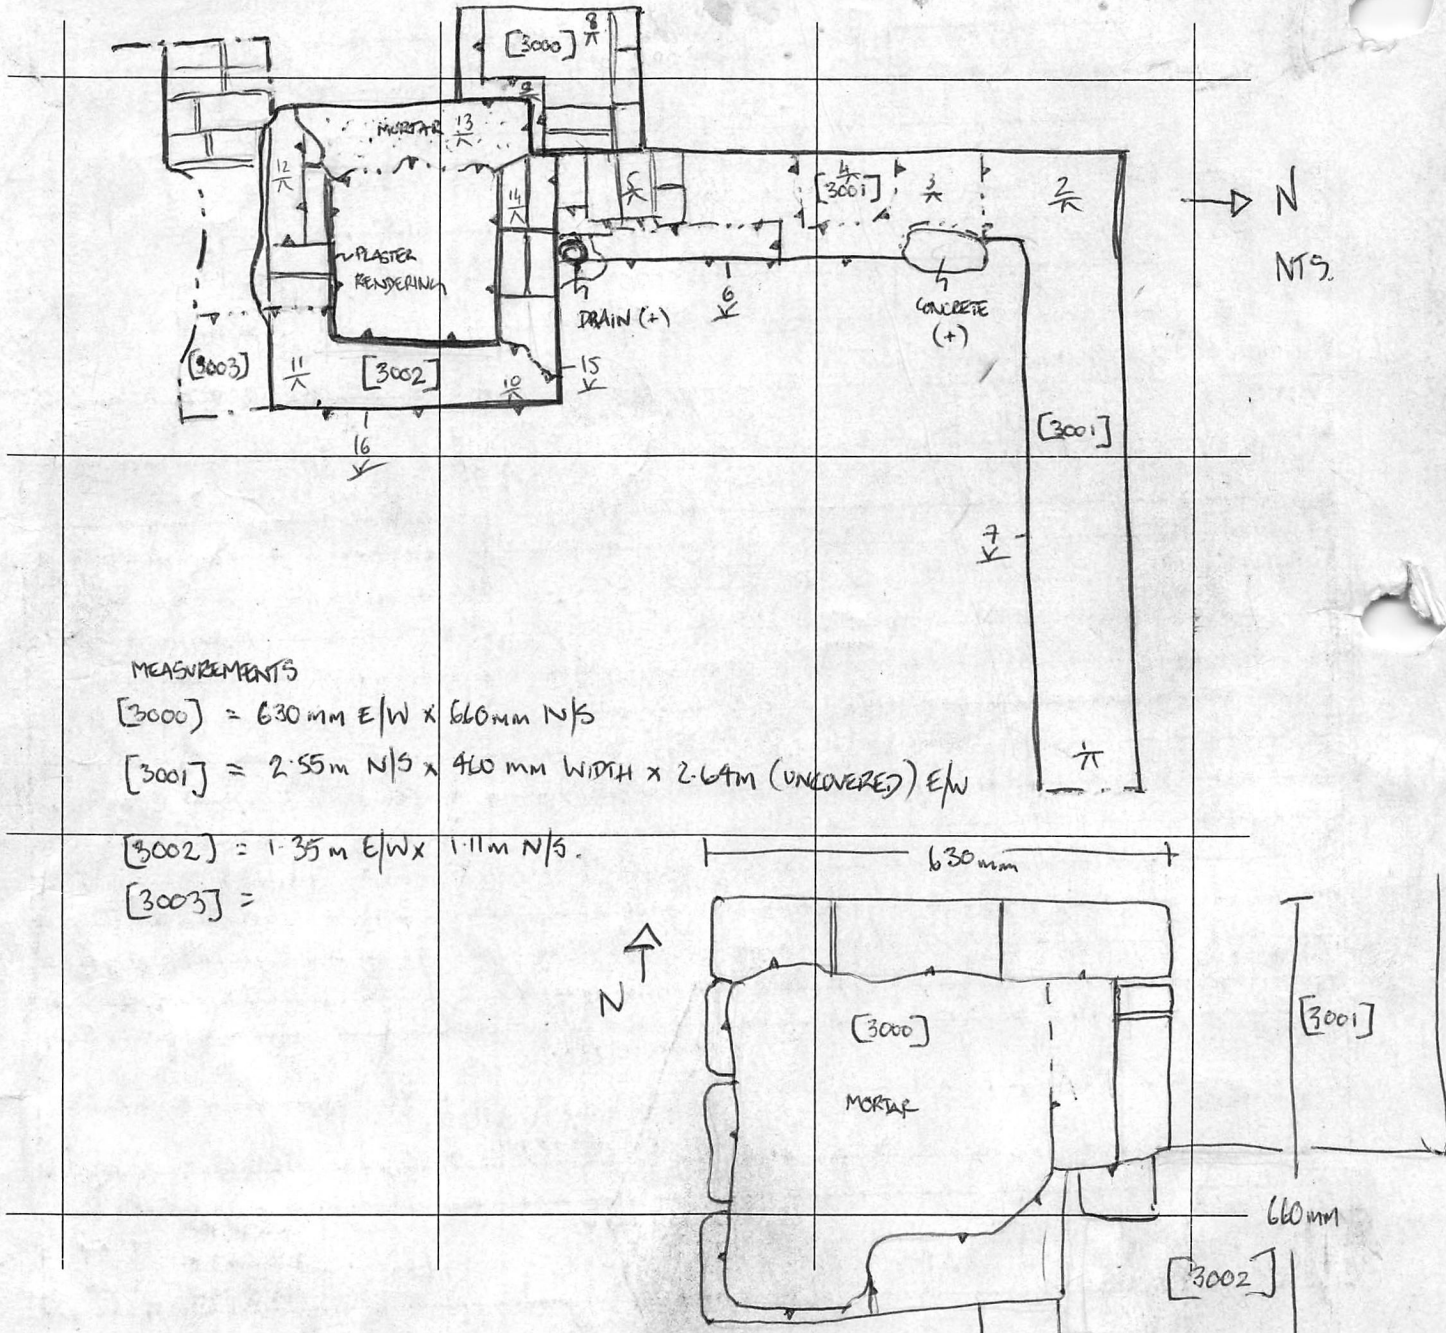 [3000]
8
9
MORTAR
13
12
14
5
4
[3001]
3
2
N
NTS.
PLASTER
RENDERING
DRAIN (+)
6
CONCRETE
(+)
[3003]
11
[3002]
10
15
16
[3001]
7
1
MEASUREMENTS
[3000] = 630mm E/W x 660mm N/S
[3001] = 2.55m N/S x 460 mm WIDTH x 2.64m (UNCOVERED) E/W
[3002] = 1.35m E/W x 1.11m N/S.
[3003] =
630mm
N
[3000]
MORTAR
[3001]
660mm
[3002]